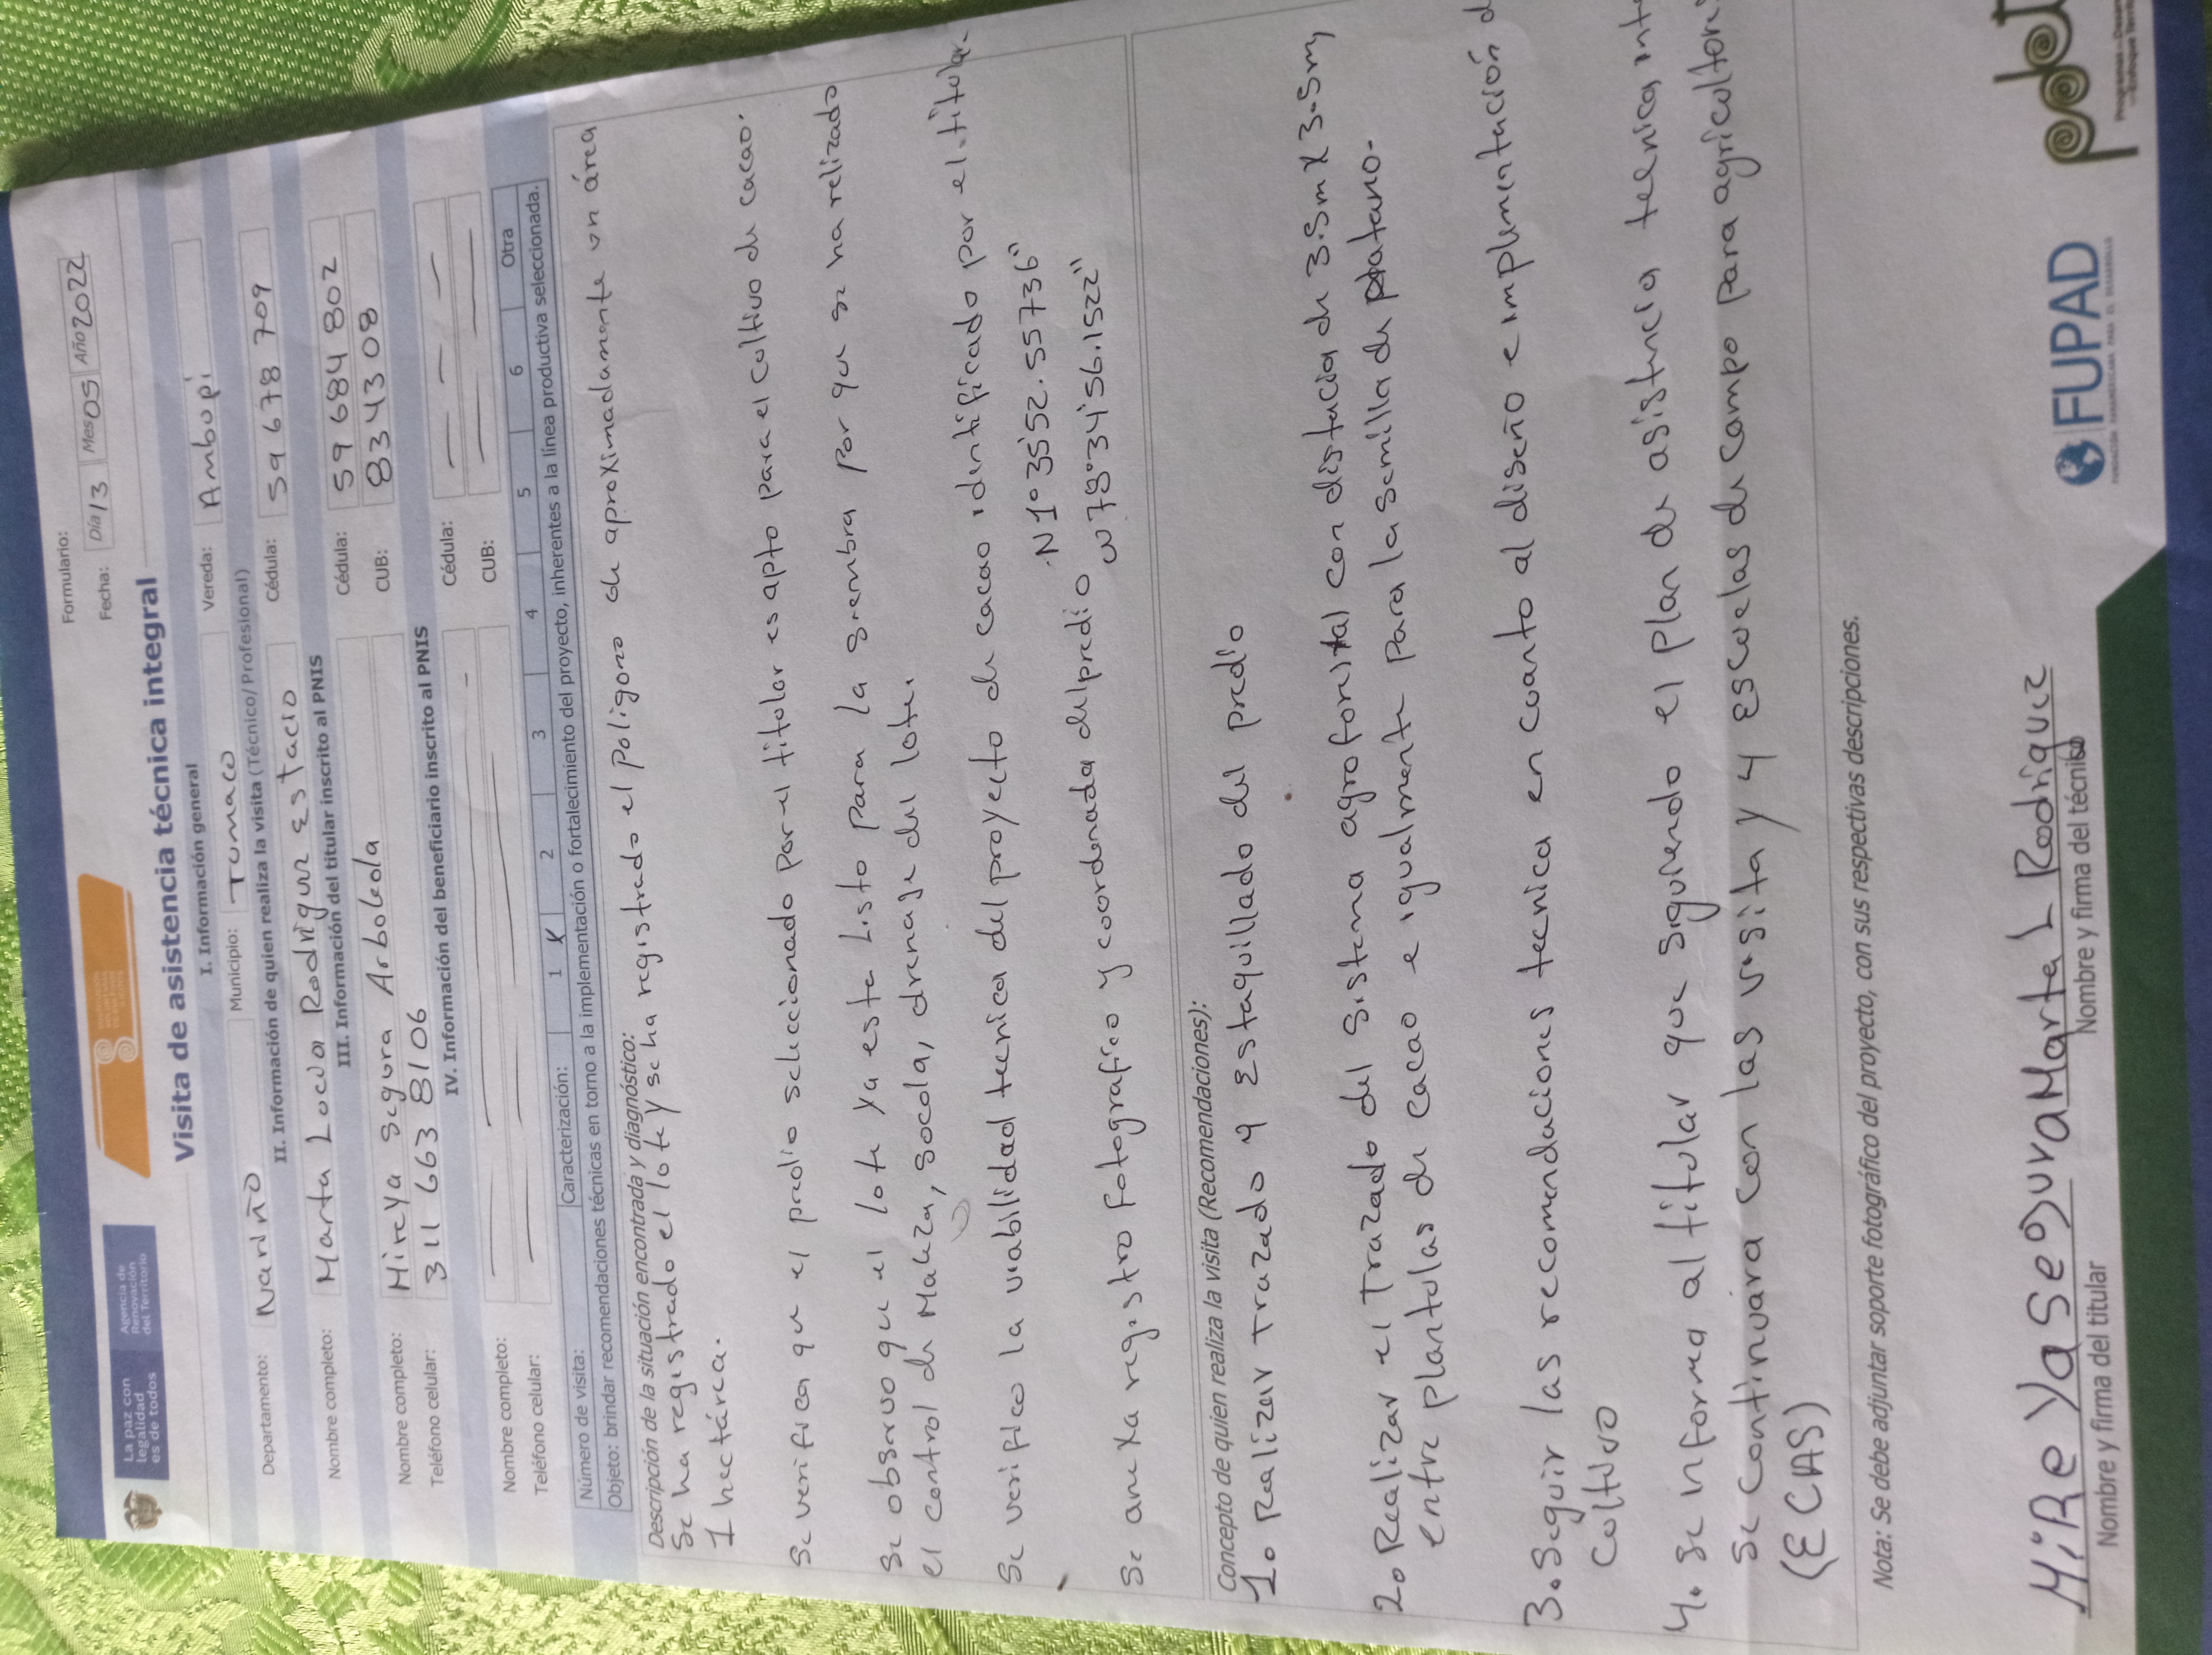 La paz con
legalidad
es de todos
Agencia de
Renovación
del Territorio
Formulario:
Fecha: Día 13 Mes 05 Año 2022
Visita de asistencia técnica integral
I. Información general
Departamento: Nariño Municipio: Tumaco Vereda: Ambupi
II. Información de quien realiza la visita (Técnico/Profesional)
Nombre completo: Marta Lucia Rodriguez Estacio Cédula: 59 678 709
III. Información del titular inscrito al PNIS
Nombre completo: Mireya Segura Arboleda Cédula: 59 684 802
Teléfono celular: 311 663 8106 CUB: 834308
IV. Información del beneficiario inscrito al PNIS
Nombre completo: Cédula:
Teléfono celular: CUB:
Número de visita: Caracterización: 1 X 2 3 4 5 6 Otra
Objeto: brindar recomendaciones técnicas en torno a la implementación o fortalecimiento del proyecto, inherentes a la línea productiva seleccionada.
Descripción de la situación encontrada y diagnóstico:
Se ha registrado el lote y se ha registrado el Poligono de aproximadamente un área
1 hectárea.
Se verifica que el predio seleccionado por el titular es apto para el cultivo de cacao.
Se observo que el lote ya esta Listo para la siembra por que se ha relizado
el control de Maleza, socola, drenaje del lote.
Se verifico la viabilidad tecnica del proyecto de cacao identificado por el titular.
N 1° 35'52.55736"
Se anexa registro fotografico y coordenada del predio W 78°34'56.1522"
Concepto de quien realiza la visita (Recomendaciones):
1. Realizar trazado y Estaquillado del predio
2. Realizar el Trazado del sistema agroforestal con distacia de 3.5m x 3.5m,
entre plantulas de cacao e igualmente para la semilla de platano.
3. Seguir las recomendaciones tecnica en cuanto al diseño e implementación d
cultivo
4. se informa al titular que siguiendo el plan de asistencia tecnica inte
se continuara con las visita y 4 Escuelas de campo para agricultores
(ECAS)
Nota: Se debe adjuntar soporte fotográfico del proyecto, con sus respectivas descripciones.
MiReYa Segura Marta L Rodriguez
Nombre y firma del titular Nombre y firma del técnico
FUPAD
FUNDACIÓN PANAMERICANA PARA EL DESARROLLO
pdet